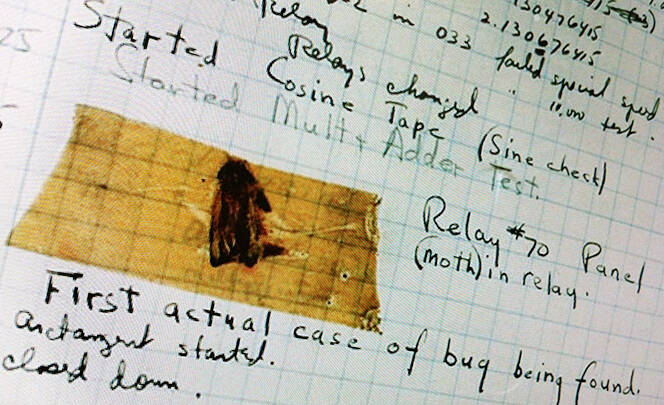 130476415
2.130676415
Relay in 033 failed special speed
Relay 11.000 test.
Relays changed
25 Started Cosine Tape (Sine check)
Started Mult + Adder Test.
Relay #70 Panel
(moth) in relay.
First actual case of bug being found.
arctangent started.
closed down.